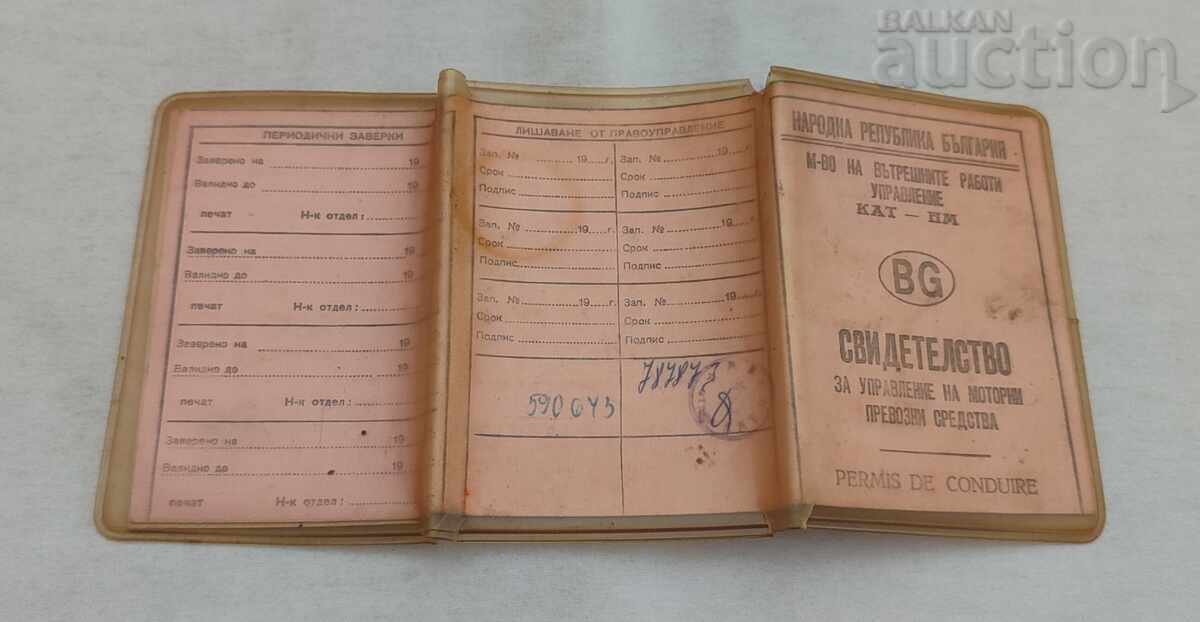 BALKAN
auction
ПЕРИОДИЧНИ ЗАВЕРКИ
Заверено на 19
Валидно до 19
печат Н-к отдел:
Заверено на 19
Валидно до 19
печат Н-к отдел:
Заверено на 19
Валидно до 19
печат Н-к отдел:
Заверено на 19
Валидно до 19
печат Н-к отдел:
ЛИШАВАНЕ ОТ ПРАВОУПРАВЛЕНИЕ
Зап. № 19 г. Зап. № 19 г.
Срок Срок
Подпис Подпис
Зап. № 19 г. Зап. № 19 г.
Срок Срок
Подпис Подпис
Зап. № 19 г. Зап. № 19 г.
Срок Срок
Подпис Подпис
590643
НАРОДНА РЕПУБЛИКА БЪЛГАРИЯ
М-ВО НА ВЪТРЕШНИТЕ РАБОТИ
УПРАВЛЕНИЕ
КАТ – НМ
BG
СВИДЕТЕЛСТВО
ЗА УПРАВЛЕНИЕ НА МОТОРНИ
ПРЕВОЗНИ СРЕДСТВА
PERMIS DE CONDUIRE